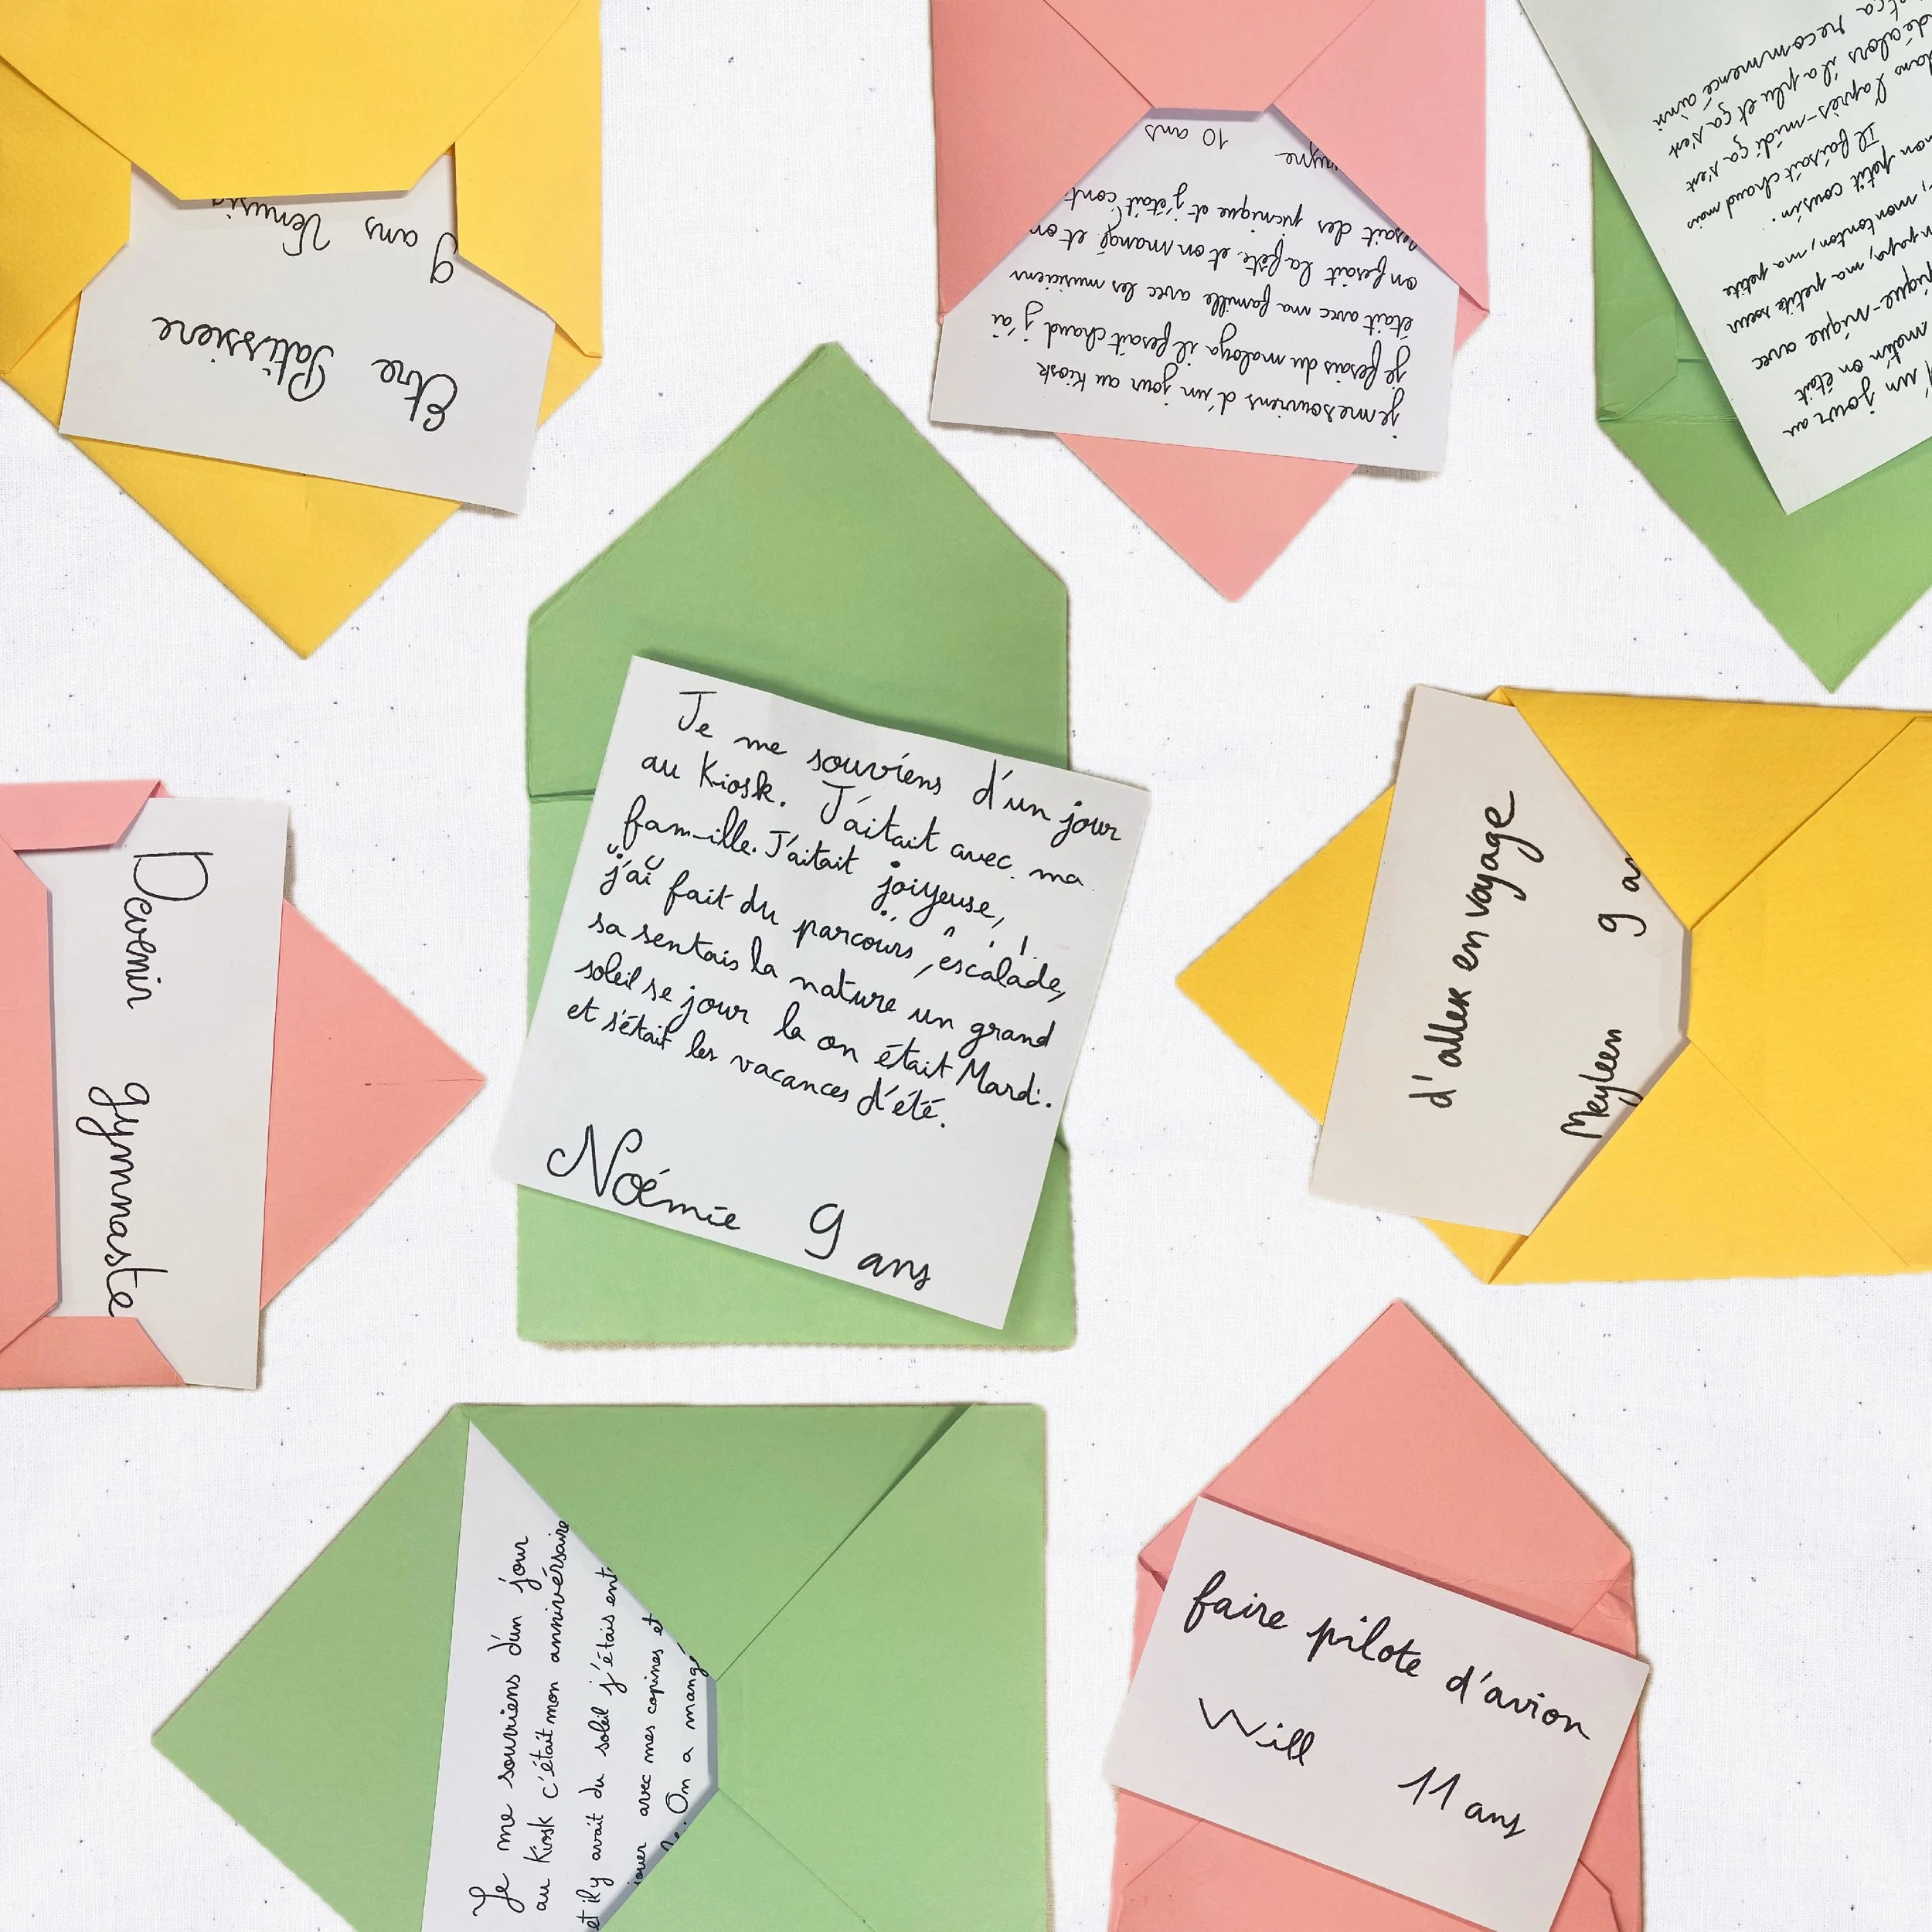 Etre Patissiere
9 ans
je me souviens d'un jour au Kiosk
je fesais du maloya il fesait chaud j'ai
était avec ma famille avec les musiciens
on fesait la fête. et on mangé et on
fesait des picnique et j'était cont
10 ans
un jour au
matin on était
pique-nique avec
papa, ma petite sœur
mon tonton, ma petite
mon petit cousin.
Il faisait chaud mais
dans l'après-midi ça s'est
il a plu et ça s'est
recommencé ainsi
Je me souviens d'un jour
au Kiosk. J'aitait avec ma
fam-ille. J'aitait joiyeuse,
j'ai fait du parcours, escalade,
sa sentais la nature un grand
soleil se jour la on était Mardi.
et s'était les vacances d'été.
Noémie 9 ans
Devenir gymnaste
d'aller en voyage
Meyleen 9
Je me souviens d'un jour
au Kiosk c'était mon anniversaire
et il y avait du soleil j'étais ent
jouer avec mes copines et
On a mangé
faire pilote d'avion
Will 11 ans